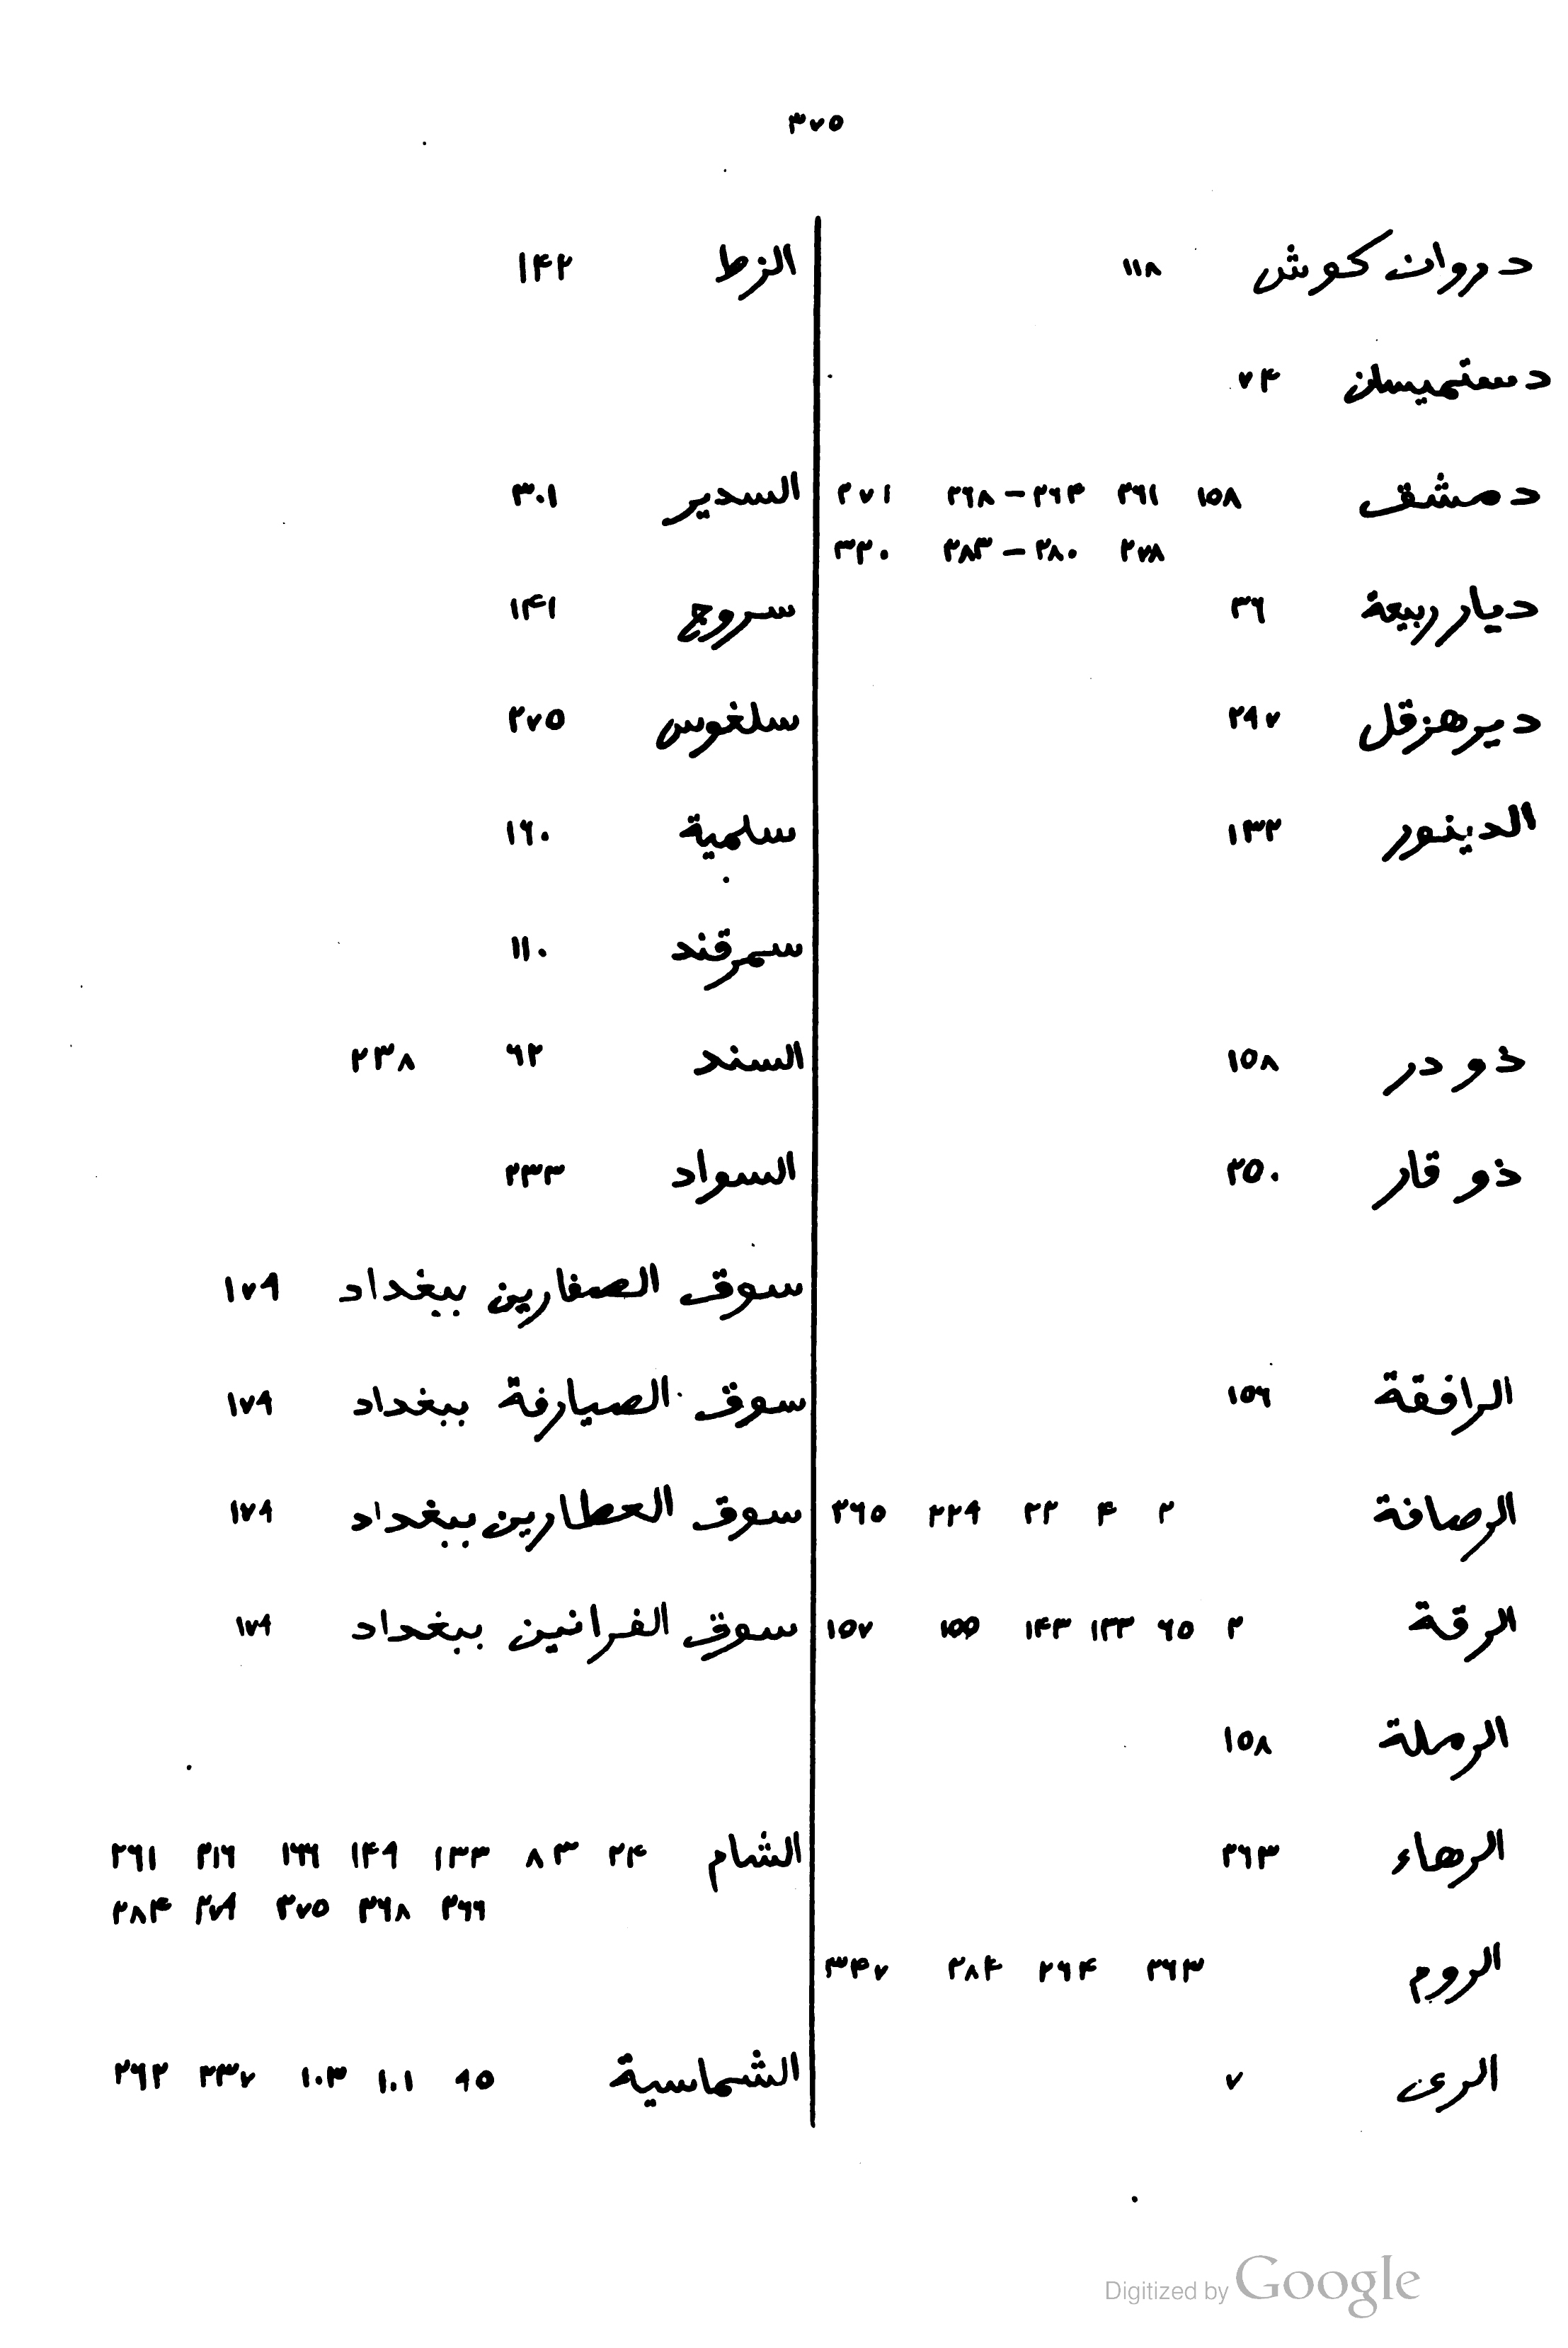 ٣٧٥
دروان كوش ١١٨
دستميسان ٧٤
دمشق ١٥٨ ٢٦١ ٢٦٤ – ٢٦٨ ٢٧١
٢٧٨ ٢٨٠ – ٢٨٣ ٣٢٠
ديار ربيعة ٣٦
دير هزقل ٢٩٧
الدينور ١٣٢
ذو در ١٥٨
ذو قار ٢٥٠
الرافقة ١٥٦
الرصافة ٢ ٤ ٢٢ ٢٢٩ ٢٦٥
الرقة ٢ ٦٥ ١٣٣ ١٤٣ ١٥٥ ١٥٧
الرملة ١٥٨
الرهاء ٢٦٣
الروم ٢٦٣ ٢٦٤ ٢٨٤ ٣٤٧
الرى ٧
الزط ١٤٢
السدير ٣٠١
سروج ١٤١
سلغوس ٢٧٥
سلمية ١٦٠
سمرقند ١١٠
السند ٦٢ ٢٣٨
السواد ٢٣٣
سوق الصفارين ببغداد ١٧٩
سوق الصيارفة ببغداد ١٧٩
سوق العطارين ببغداد ١٧٩
سوق الفرانين ببغداد ١٧٩
الشام ٢٤ ٨٣ ١٣٣ ١٤٩ ١٦٦ ٢١٦ ٢٦١
٢٦٦ ٢٦٨ ٢٧٥ ٢٧٩ ٢٨٤
الشماسية ٩٥ ١٠١ ١٠٣ ٢٣٧ ٢٦٢
Digitized by Google